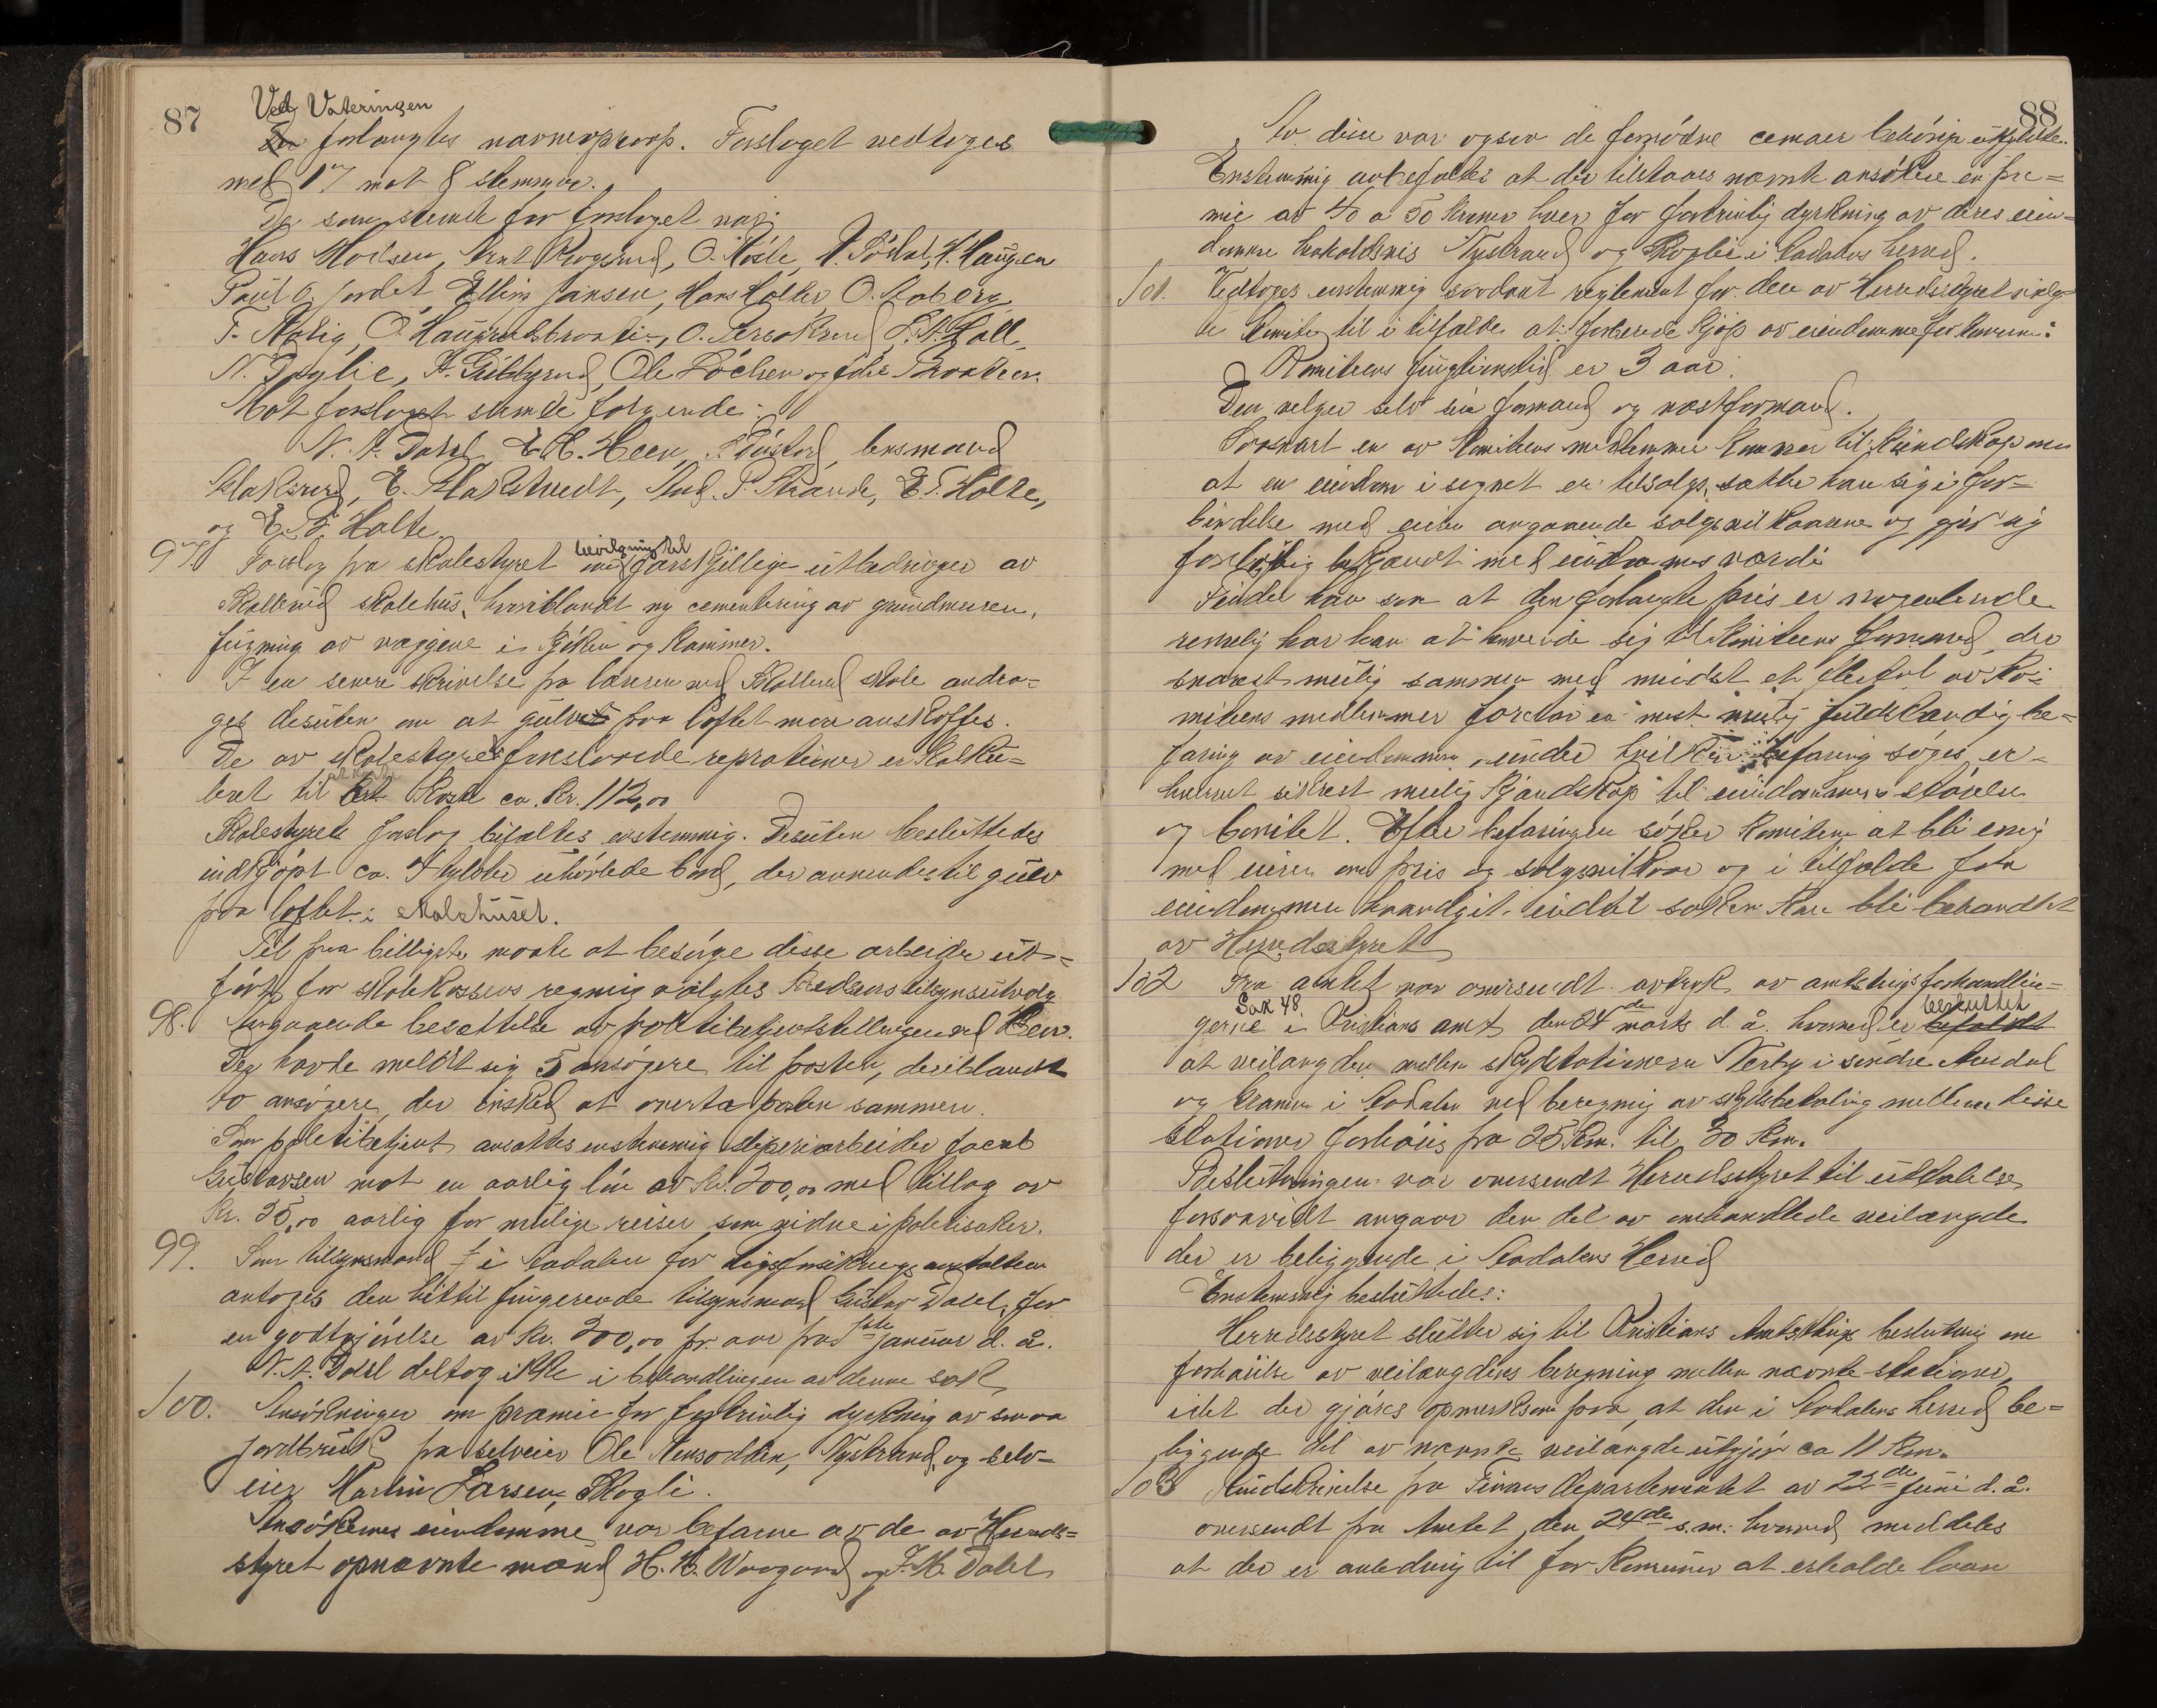 87
Ved Voteringen
forlangtes navneoprop. Forslaget vedtoges
med 17 mot 8 stemmer.
De som stemte for forslaget var:
Hans Moilsen, O. H. Haugen
Paul O. Jordet, Elling Jansen, Hans Holter O.
O. Haugerudsbraaten, O.
N. Ole Löchen og
Mot forslaget stemte følgende:
N. A. Dahl, E. H. Heen, lensmand
Klaksrud, E. And. P. Strande, E. T. Holte,
og E. F. Holte.
97. Forslag fra skolestyret om bevilgning til forskjellige utbedringer av
skolehus, hvoriblandt ny cementering av grundmuren,
av væggene i kjøken og kammer.
I en senere skrivelse fra læreren ved skole andra=
ges desuten om at gulvet paa loftet maa anskaffes.
De av skolestyret foreslaaede reprationer er kalku=
leret til at koste ca. kr. 112,00
Skolestyrets forslag bifaltes enstemmig. Desuten besluttedes
indkjöpt ca. tylvter uhövlede bord, der anvendes til gulv
paa loftet i skolehuset.
Til paa billigste maate at besörge disse arbeider ut=
fört for skolekassens regning valgtes kredsens tilsynsutvalg
98. Angaaende besættelse av politibetjentstillingen ved Hen.
Der havde meldt sig 5 ansögere til posten, deriblandt
to ansögere, der önsked at overta posten sammen.
Som politibetjent ansattes enstemmig sliperiarbeider Jacob
Gustavsen mot en aarlig lön av kr. 200,00 med tillæg av
Kr. 35,00 aarlig for mulige reiser som vidne i politisaker.
99. Som tilsynsmand i Aadalen for anstalten
antoges den hittil fungerende tilsynsmand Gustav Dahl, for
en godtgjörelse av kr. 300,00 pr. aar fra 1ste januar d. å.
N. A. Dahl deltog ikke i behandlingen av denne sak
100. Ansökninger om præmie for fortrinlig dyrkning av smaa
jordbruk fra selveier Ole Aensodden, Nystrand og selv=
eier Martin Larsen, Skogli.
Ansökernes eiendomme var befarne av de av Herreds=
styret opnævnte mænd H. K. Woogaard og J. M. Dahl

88
Av disse var ogsaa de fornödne behörig utfyldte.
Enstemmig anbefaltes at der tilstaaes nævnte ansökere en præ=
mie av 40 a 50 kroner hver for fortrinlig dyrkning av deres eien=
domme henholdsvis Nystrand og Skogli i Aadalens herred.
101. Vedtoges enstemmig saadant reglement for den av Herredsstyret valg=
te komite til i tilfælde at forberede kjöp av eiendomme for kommunen:
Komiteens funktionstid er 3 aar.
Den velger selv sin formand og næstformand.
Saasnart en av komiteens medlemmer kommer til kundskap om
at en eiendom i sognet er tilsalgs, sætter han sig i for=
bindelse med eieren angaaende salgsvilkaarene og gjør sig
foreløbig bekjendt med eiendommens værdi
Finder han som at den forlangte pris er nogenlunde
rimelig har han at henvende sig til komiteens formand, der
snarest mulig sammen med mindst et flertal av ko=
miteens medlemmer foretar en mest mulig fuldstændig be=
faring av eiendommen, under hvilken befaring søges er=
hvervet sikrest mulig kjendskap til eiendommens størrelse
og bonitet. Efter befaringen söker komiteen at bli enig
med eieren om pris og salgsvilkaar og i tilfælde faa
eiendommen haandgit indtil saken kan bli behandlet
av Herredsstyret
102 Fra amtet var oversendt avtryk av amtstingsforhandlin=
gerne i Kristians amt Sak 48 den 24de marts d. å. hvorved er besluttet
at veilængden mellem skydsstationerne Nerby i søndre Aurdal
og i Aadalen ved beregning av skydsbetaling mellem disse
stationer forhøies fra 25 km. til 30 km.
Beslutningen var oversendt Herredsstyret til uttalelse
forsaavidt angaar den del av omhandlede veilængde
der er beliggende i Aadalens Herred
Enstemmig besluttedes:
Herredsstyret slutter sig til Kristians Amtsthings beslutning om
forhöielse av veilængdens beregning mellem nævnte stationer,
idet der gjöres opmerksom paa, at den i Aadalens herred be=
liggende del av nævnte veilængde utgjör ca 11 km.
103 Rundskrivelse fra Finans departementet av 22de juni d. å.
oversendt fra Amtet den 24de s.m. hvorved meddeles
at der er anledning til for kommuner at erholde laan